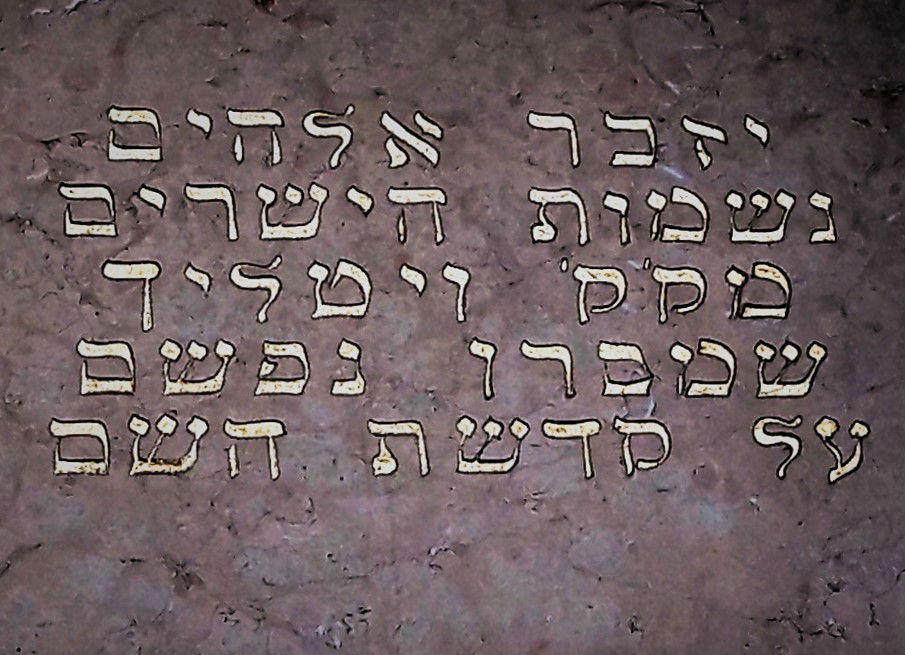 יזכר אלהים
נשמות הישרים
מק'ק' ויטליך
שמסרו נפשם
על קדשת השם